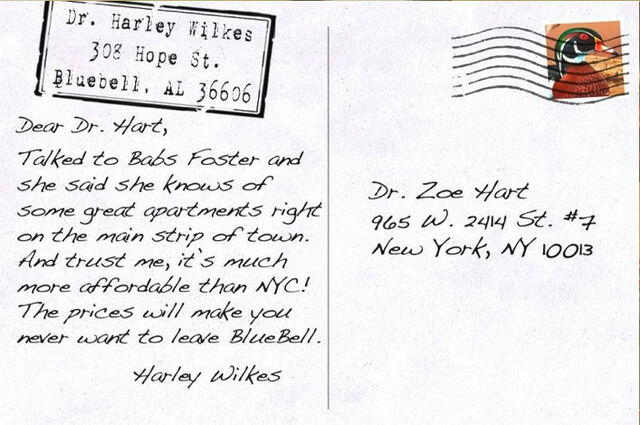 Dr. Harley Wilkes
308 Hope St.
Bluebell, AL 36606
Dear Dr. Hart,
Talked to Babs Foster and
she said she knows of
some great apartments right
on the main strip of town.
And trust me, it's much
more affordable than NYC!
The prices will make you
never want to leave BlueBell.
Harley Wilkes
Dr. Zoe Hart
965 W. 24th St. #7
New York, NY 10013